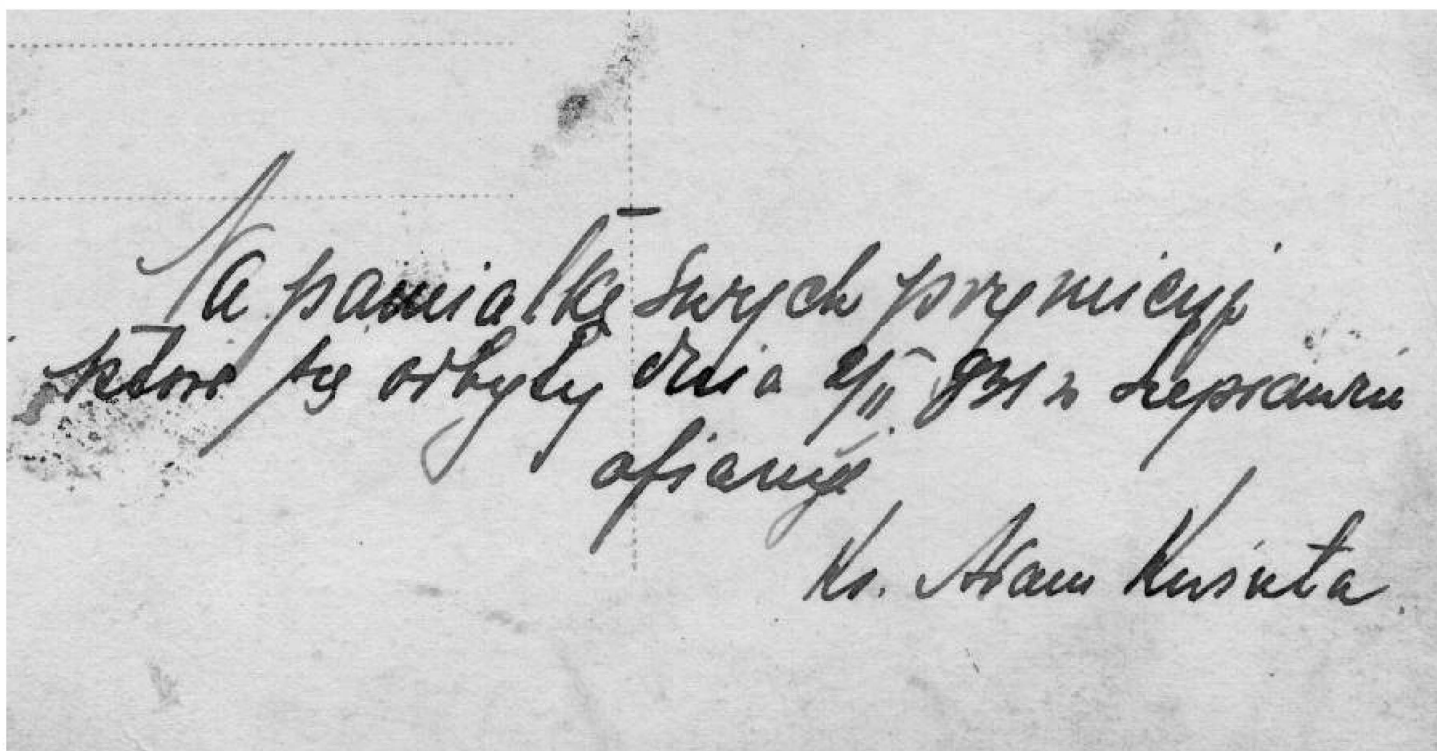 Na pamiątkę swych prymicyj
które się odbyły dnia 2/II 931 w
ofiaruję
Ks. Adam